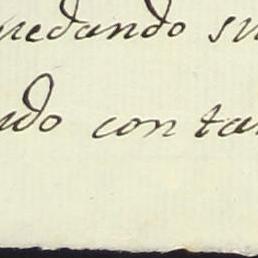 uedando su
udo con ta